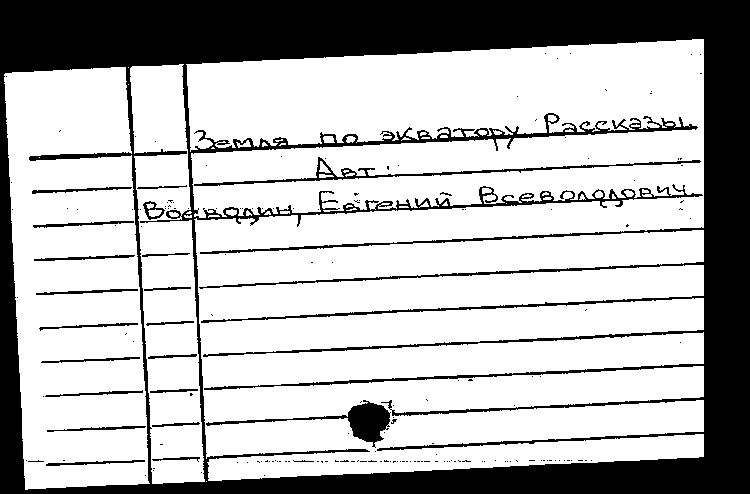 Земля по экватору Рассказы.
Авт:
Воеводин, Евгений Всеволодович.